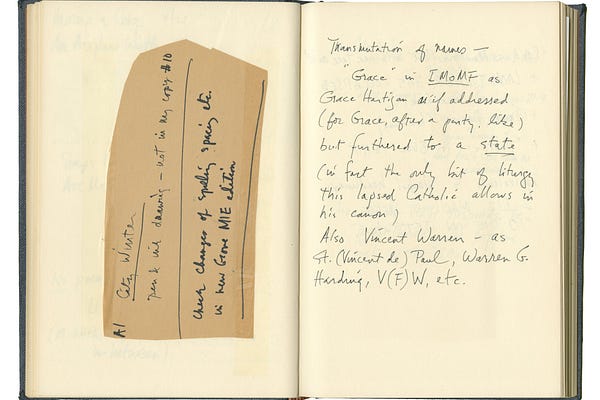 A1 City Winter
pen & ink drawing – not in my copy #10
Check changes of spelling, spacing etc.
in new Grove MIE edition
Transmutation of names –
"Grace" in IMoMF as
Grace Hartigan as if addressed
(for Grace, after a party, like)
but furthered to a state
(in fact the only bit of liturgy
this lapsed Catholic allows in
his canon)
Also Vincent Warren – as
St. (Vincent de) Paul, Warren G.
Harding, V(F)W, etc.